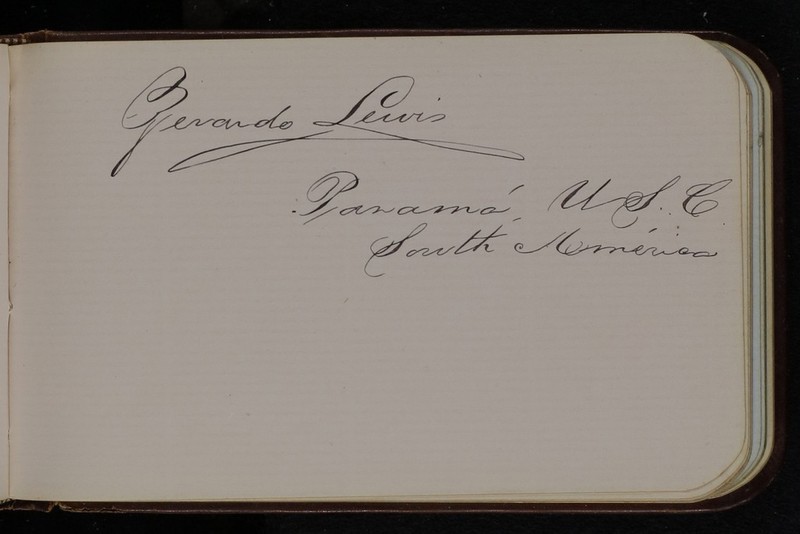 Gerardo Lewis
Panamá, U.S.C.
South América